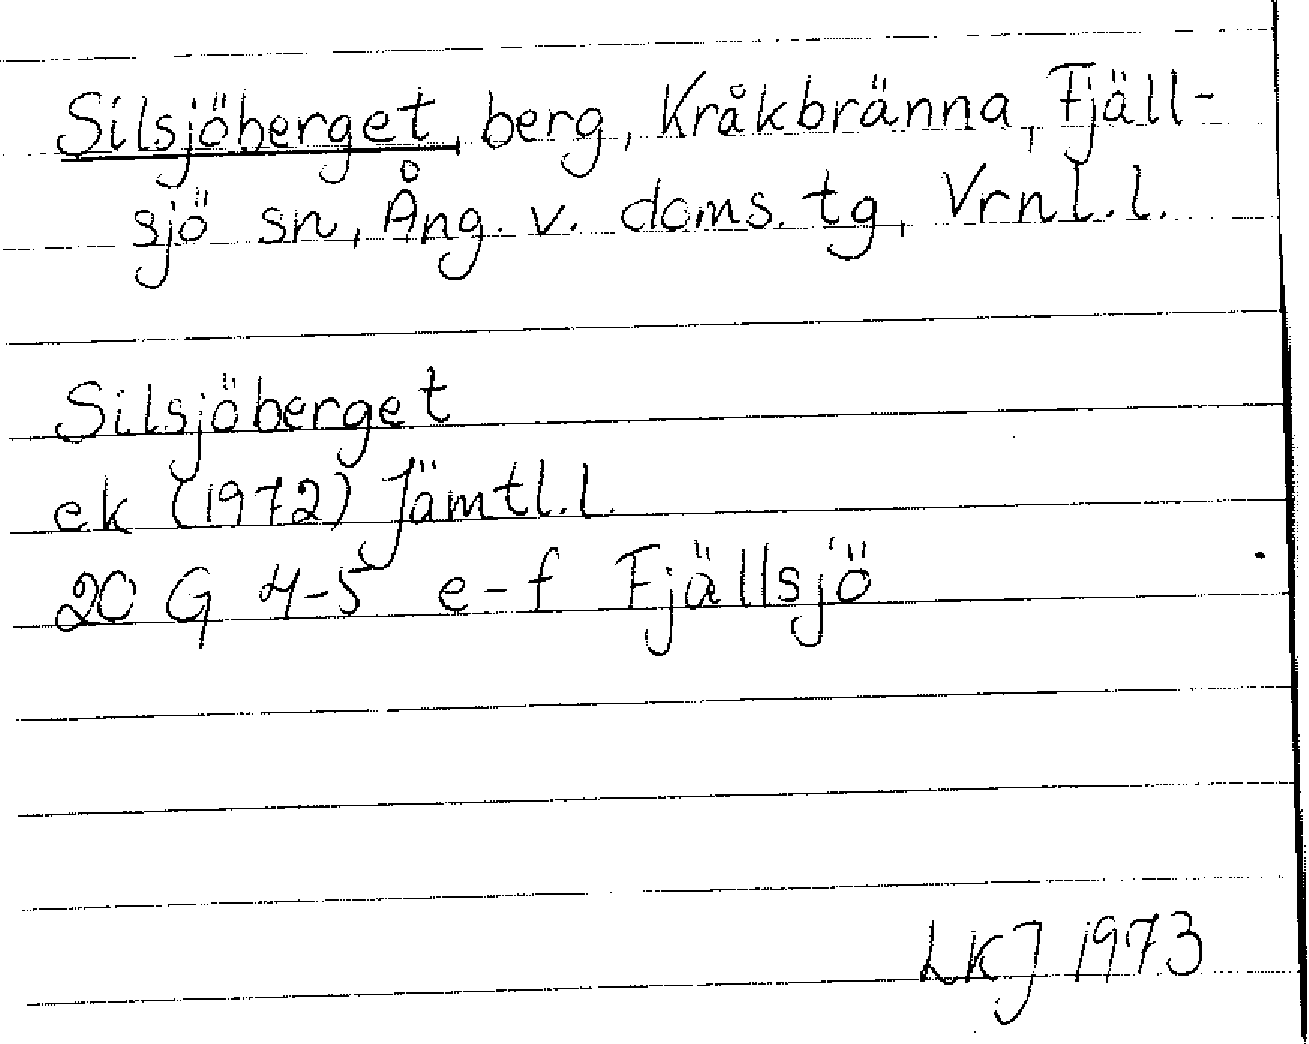 Silsjöberget, berg, Kråkbränna, Fjäll-
sjö sn, Ång. v. doms. tg, Vrnl. l.
Silsjöberget
ek (1972) Jämtl. l.
20 G 4-5 e-f Fjällsjö
LKJ 1973